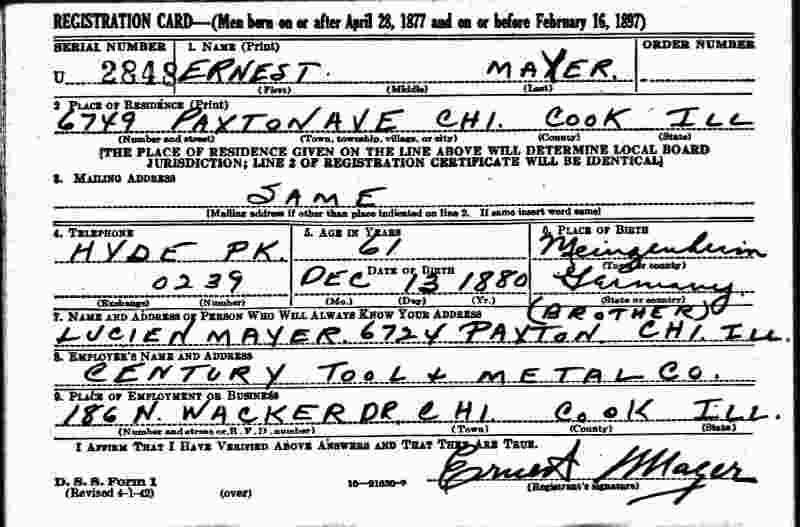 REGISTRATION CARD—(Men born on or after April 28, 1877 and on or before February 16, 1897)
SERIAL NUMBER 1. NAME (Print) ORDER NUMBER
U 2848 ERNEST. MAYER.
(First) (Middle) (Last)
2 PLACE OF RESIDENCE (Print)
6749 PAXTON AVE CHI. COOK ILL
(Number and street) (Town, township, village, or city) (County) (State)
[THE PLACE OF RESIDENCE GIVEN ON THE LINE ABOVE WILL DETERMINE LOCAL BOARD
JURISDICTION; LINE 2 OF REGISTRATION CERTIFICATE WILL BE IDENTICAL]
3. MAILING ADDRESS
SAME
[Mailing address if other than place indicated on line 2. If same insert word same]
4. TELEPHONE 5. AGE IN YEARS 6. PLACE OF BIRTH
HYDE PK. 61
(Town or county)
DATE OF BIRTH
0239 DEC 13 1880 Germany
(Exchange) (Number) (Mo.) (Day) (Yr.) (State or country)
7. NAME AND ADDRESS OF PERSON WHO WILL ALWAYS KNOW YOUR ADDRESS (BROTHER)
LUCIEN MAYER. 6724 PAXTON. CHI. ILL.
8. EMPLOYER'S NAME AND ADDRESS
CENTURY TOOL & METAL CO.
9. PLACE OF EMPLOYMENT OR BUSINESS
186 N. WACKER DR. CHI. COOK ILL.
(Number and street or R. F. D. number) (Town) (County) (State)
I AFFIRM THAT I HAVE VERIFIED ABOVE ANSWERS AND THAT THEY ARE TRUE.
Ernest Mayer
D. S. S. Form 1 16—21630-2 (Registrant's signature)
(Revised 4-1-42) (over)